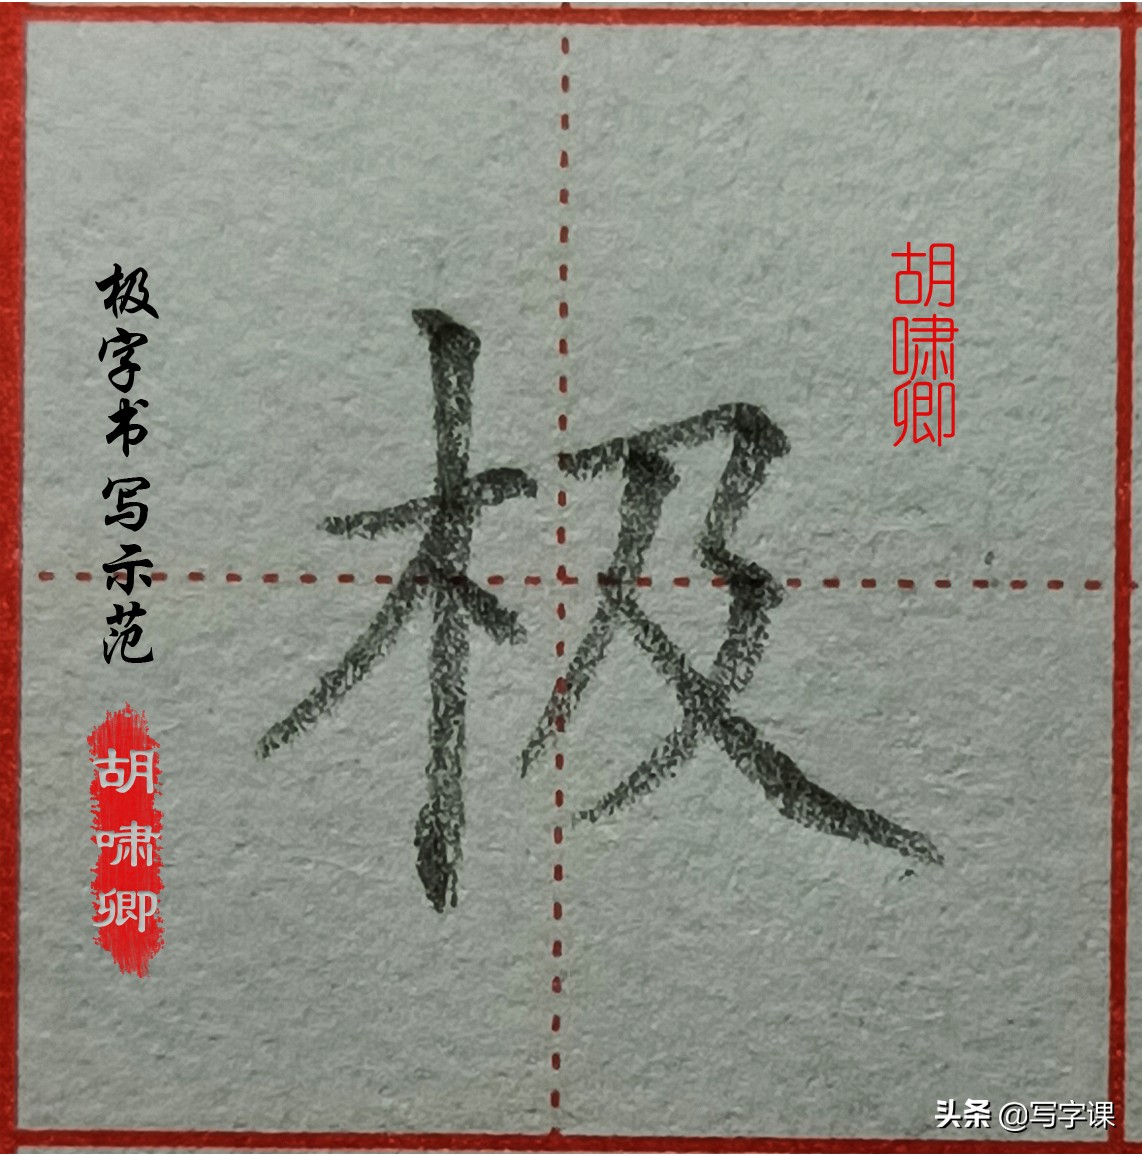 极字书写示范
胡啸卿
极
胡啸卿
头条 @写字课